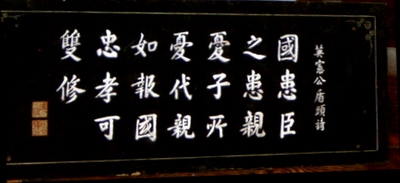 英憲公盾頭詩
國患臣
之患親
憂子所
憂代親
如報國
忠孝可
雙修